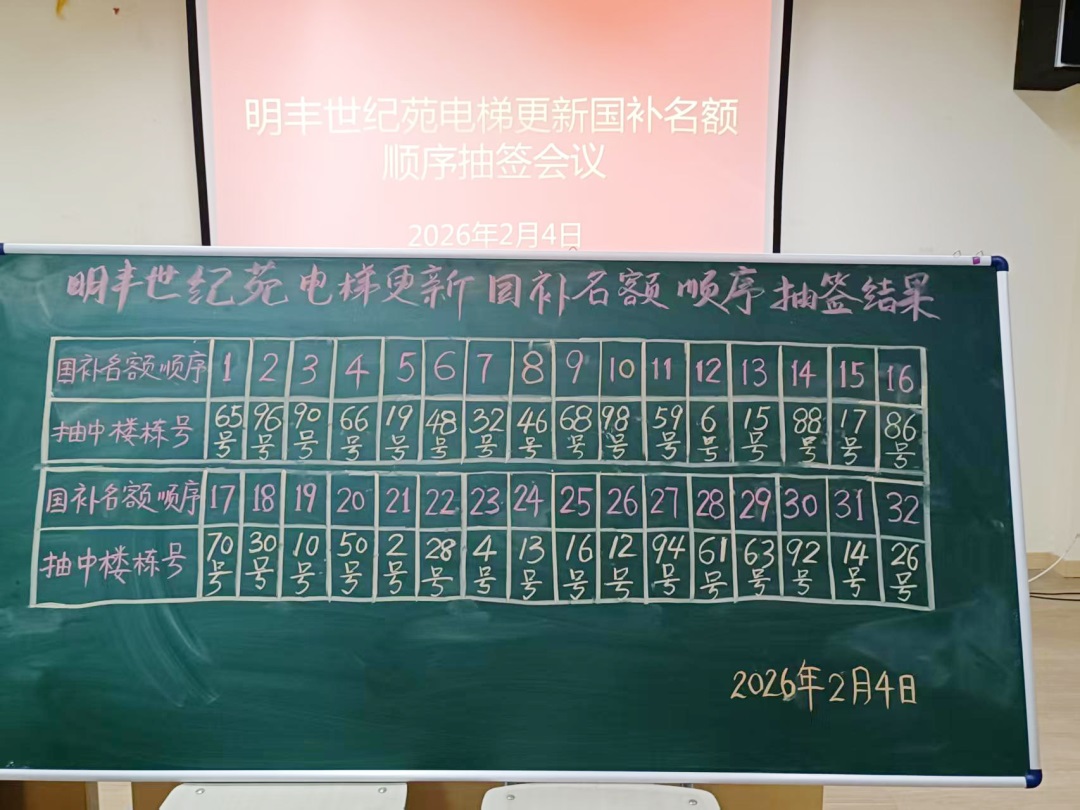 明丰世纪苑电梯更新国补名额
顺序抽签会议
2026年2月4日
明丰世纪苑电梯更新国补名额顺序抽签结果
国补名额顺序 1 2 3 4 5 6 7 8 9 10 11 12 13 14 15 16
抽中楼栋号 65号 96号 90号 66号 19号 48号 32号 46号 68号 98号 59号 6号 15号 88号 17号 86号
国补名额顺序 17 18 19 20 21 22 23 24 25 26 27 28 29 30 31 32
抽中楼栋号 70号 30号 10号 50号 2号 28号 4号 13号 16号 12号 94号 61号 63号 92号 14号 26号
2026年2月4日